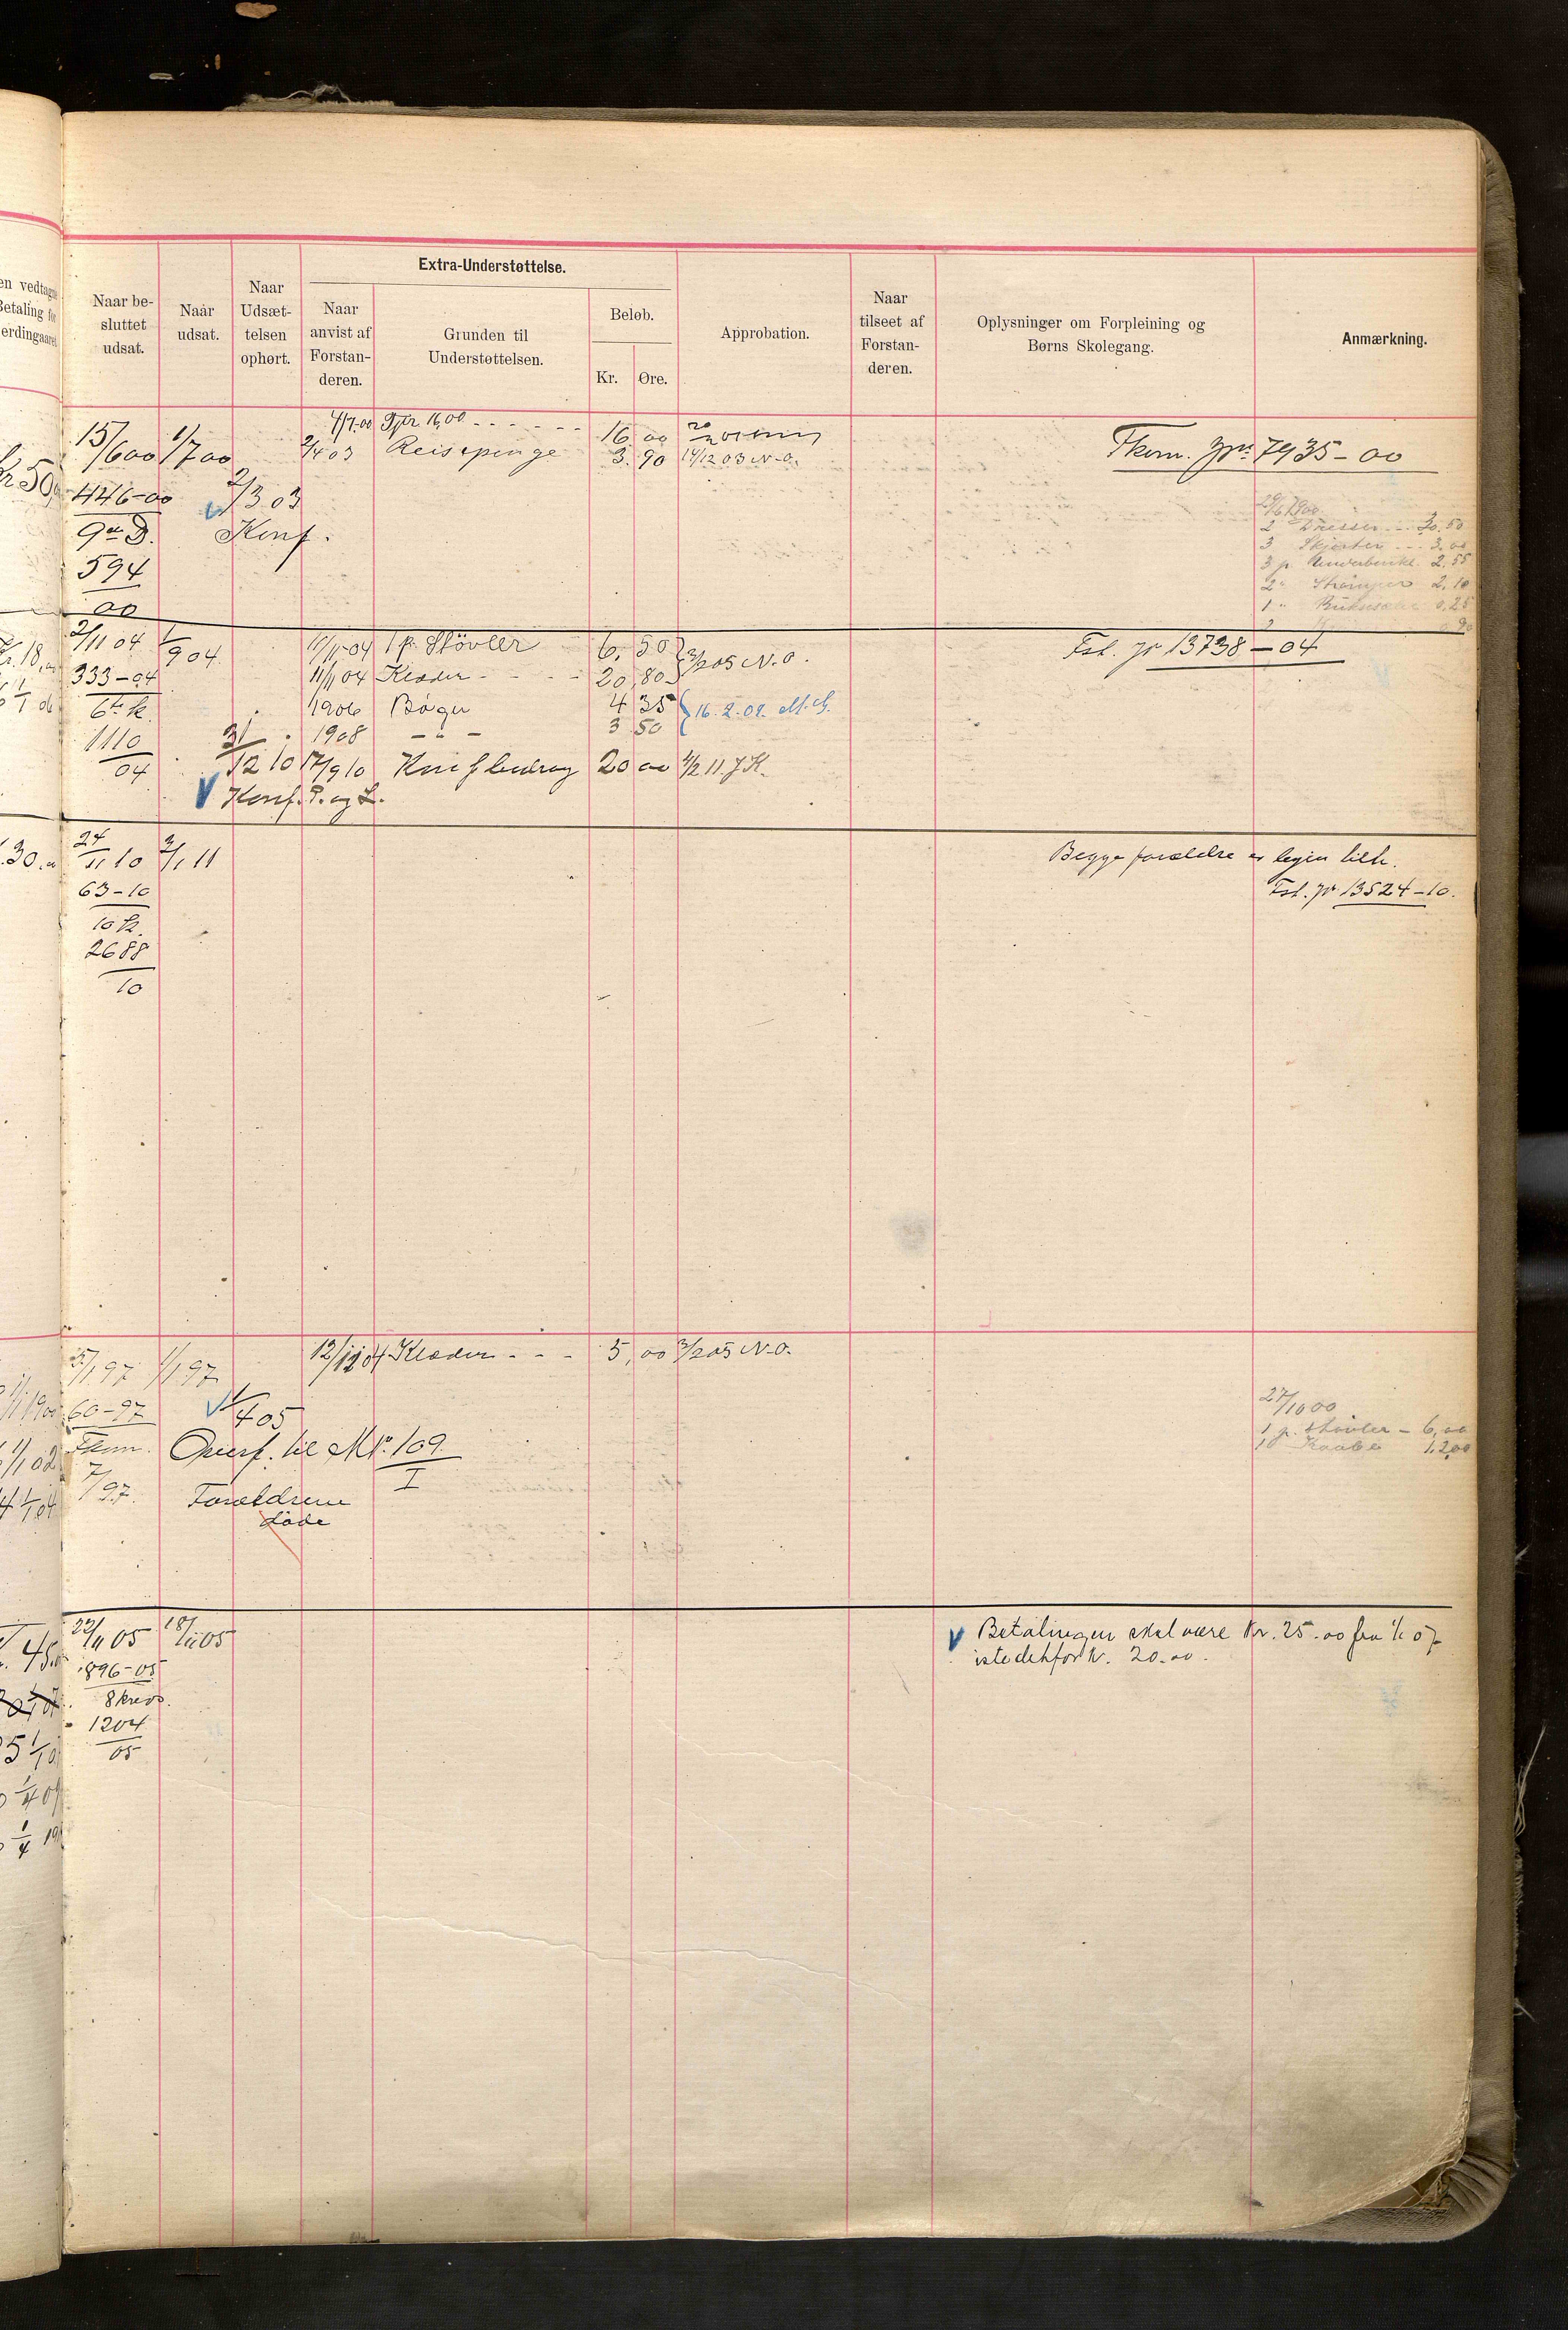 en vedtagne
Betaling for
erdingaaret
Naar be-
sluttet
udsat.
Naar
udsat.
Naar
Udsæt-
telsen
ophørt.
Extra-Understøttelse.
Naar
anvist af
Forstan-
deren.
Grunden til
Understøttelsen.
Beløb.
Kr. Øre.
Approbation.
Naar
tilseet af
Forstan-
deren.
Oplysninger om Forpleining og
Børns Skolegang.
Anmærkning.
4/7.00 16,00 - - - - - - 16 00
15/6 00 1/7 00 2/4 03 Reisepenge 3. 90 14/12 03 N.O.
Fkom. 7935-00
446-00 2/3 03
Konf.
594
00
29/6 1900
2 Dresser - - 20.50
3 Skjorter - - - 3.00
3 p. Underbenkl. 2,55
2 " Strømper 2,10
1 " 0,25
2/11 04 1/9 04 11/11-04 1 p. Støvler 6, 50 3/2 05 N.O.
Fst. jr 13738-04
333-04 11/11 04 Klæder - - - - 20,80
6te k. 1906 Bøger 4 35 16.2.09. M.G.
1110 1908 - " - 3 50
04
31/12 10 17/9 10 Konf bidrag 20 00 4/2 11 J K.
V Konf. P. og L.
30.
24/11 10 3/1 11
Begge forældre er
63-10
Fst. jr 13524-10.
10 k.
2688
10
5/1 97 1/1 97 12/12 04 Klæder - - - 5,00 3/2 05 N.O.
60-97 1/4 05
Fkom. Overf. til M No. 109
I
7/97. Forældrene
døde
27/10 00
1 p. Støvler - 6,00
1 Kaabe 12,00
22/11 05 18/11 05
V Betalingen skal være Kr. 25.00 fra 1/1 07
istedetfor Kr. 20.00.
896-05
8 kreds.
1204
05